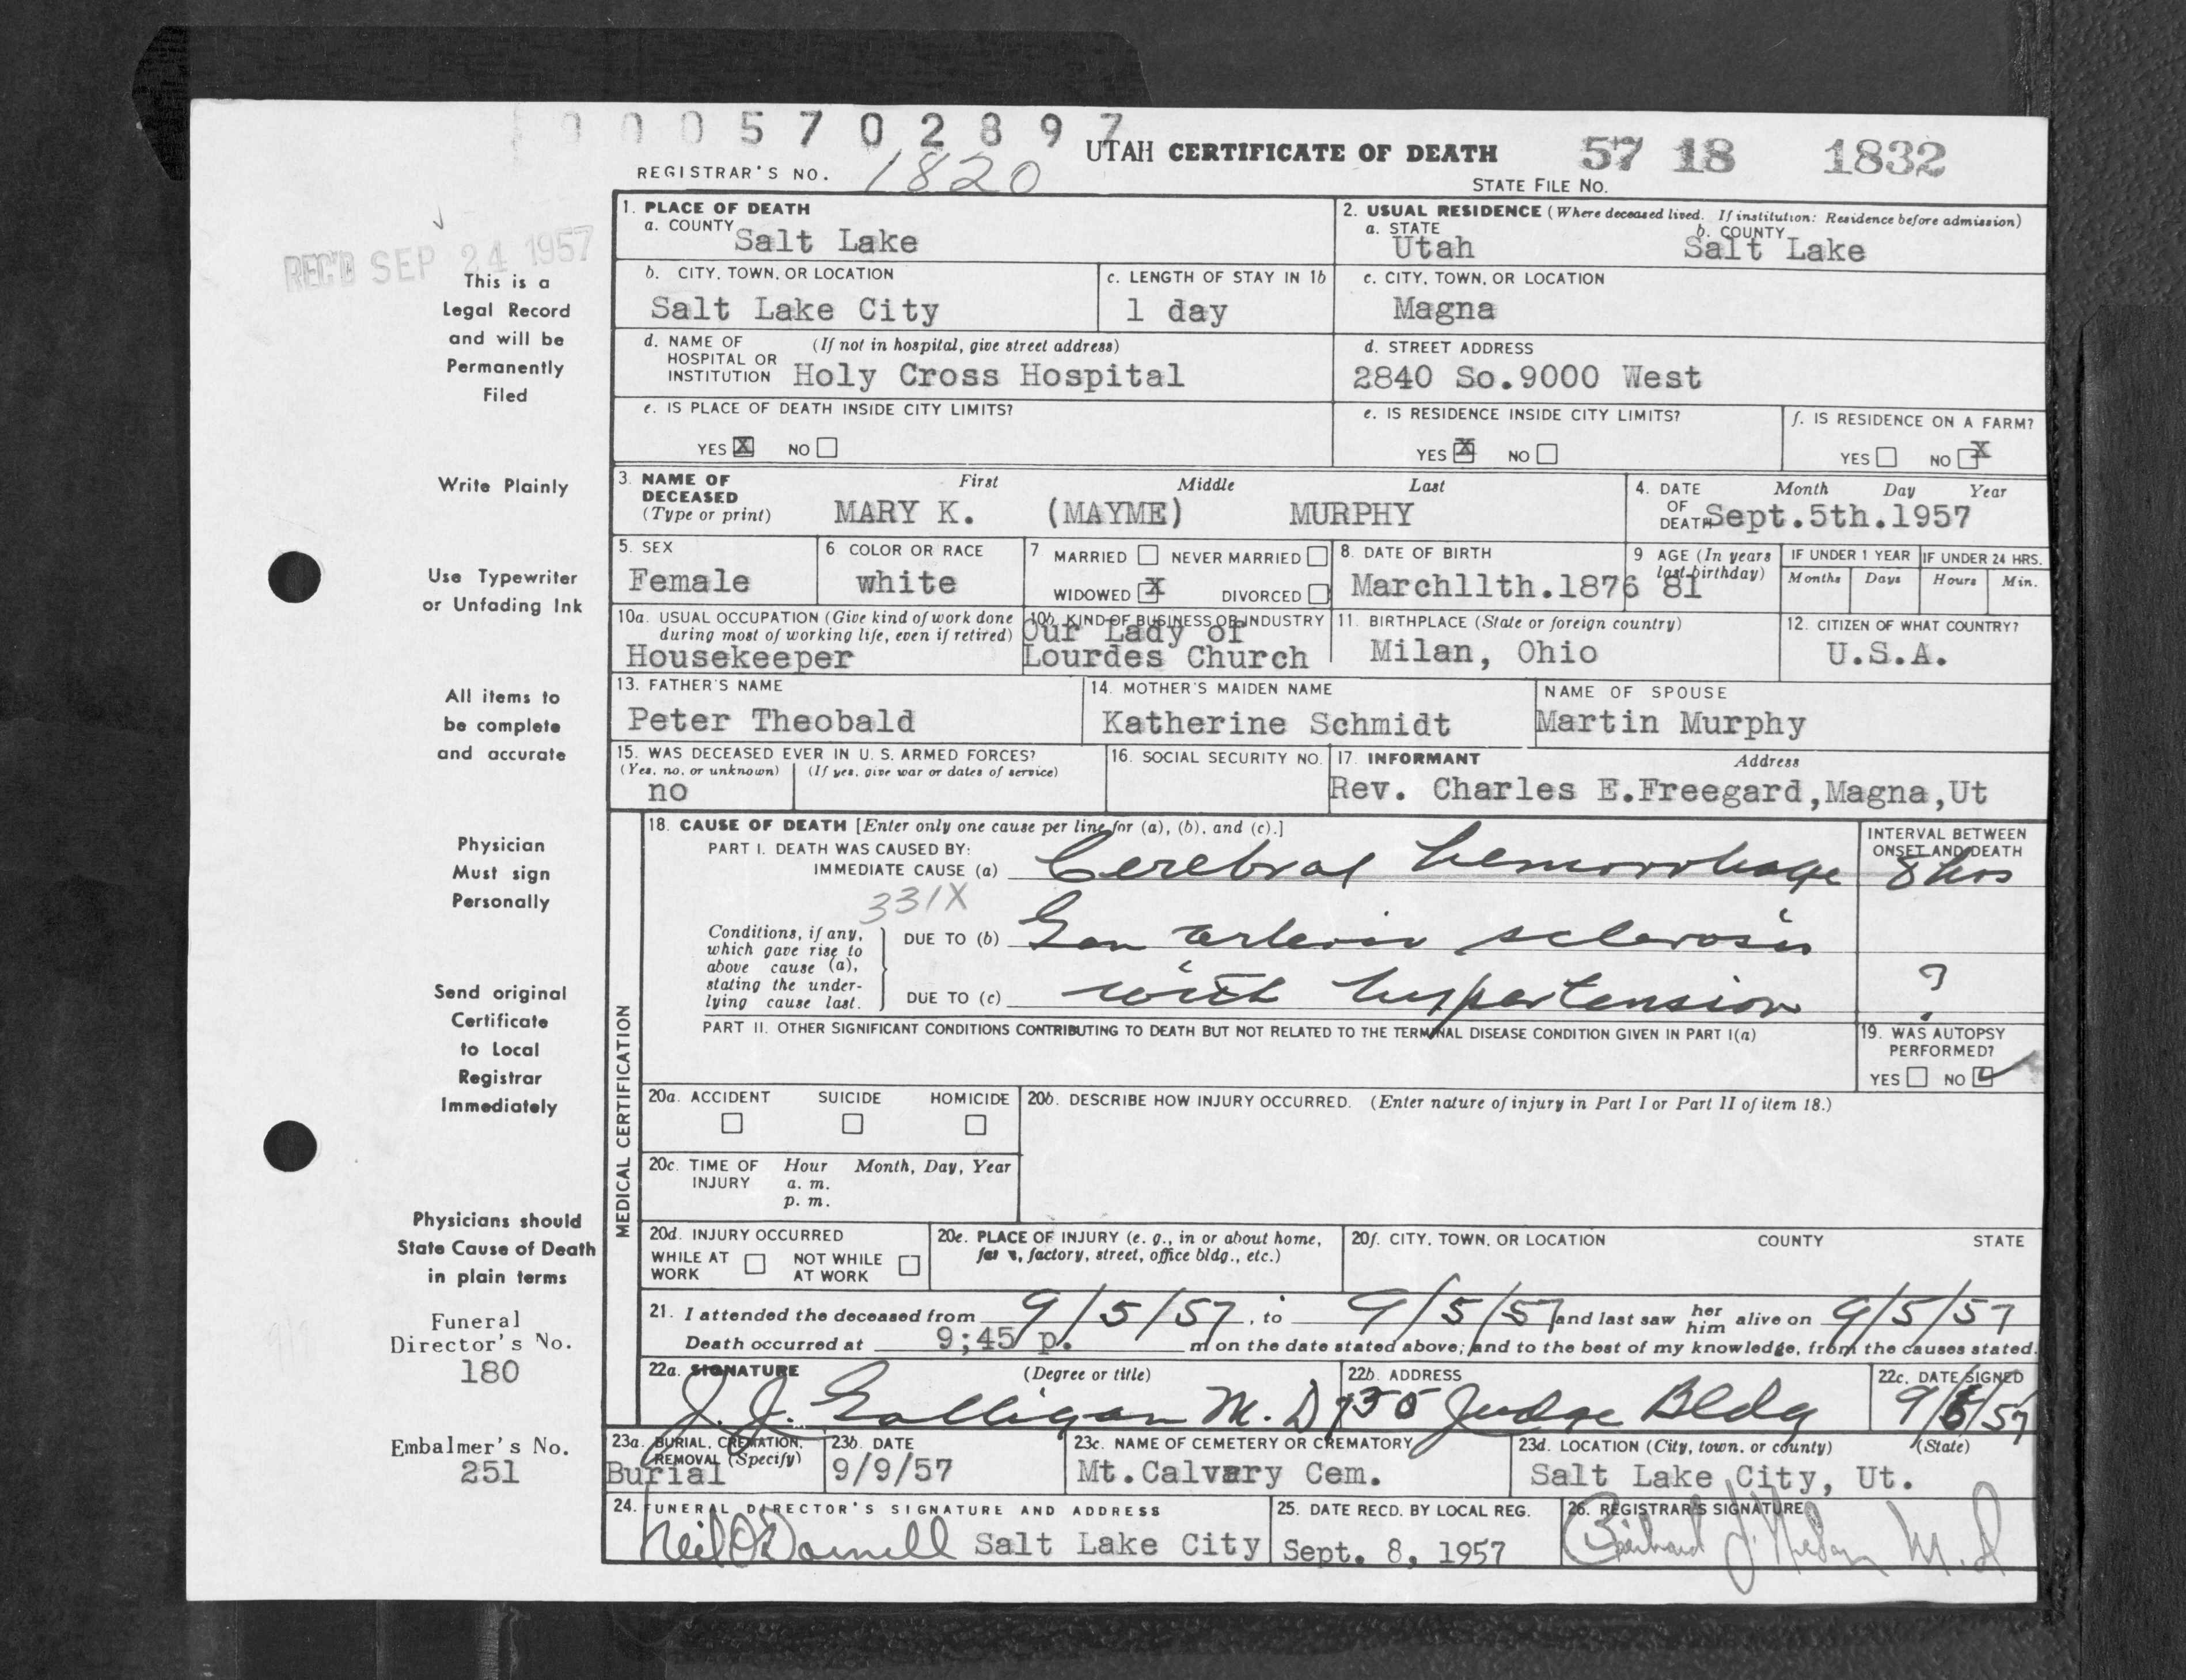 0 0 0 5 7 0 2 8 9 7
UTAH CERTIFICATE OF DEATH 57 18 1832
REGISTRAR'S NO. 1820
STATE FILE No.
REC'D SEP 24 1957
This is a
Legal Record
and will be
Permanently
Filed
1. PLACE OF DEATH
a. COUNTY Salt Lake
2. USUAL RESIDENCE (Where deceased lived. If institution: Residence before admission)
a. STATE Utah b. COUNTY Salt Lake
b. CITY, TOWN, OR LOCATION Salt Lake City
c. LENGTH OF STAY IN 1b 1 day
c. CITY, TOWN, OR LOCATION Magna
d. NAME OF HOSPITAL OR INSTITUTION (If not in hospital, give street address) Holy Cross Hospital
d. STREET ADDRESS 2840 So.9000 West
e. IS PLACE OF DEATH INSIDE CITY LIMITS?
YES X NO
e. IS RESIDENCE INSIDE CITY LIMITS?
YES X NO
f. IS RESIDENCE ON A FARM?
YES NO X
Write Plainly
3. NAME OF DECEASED (Type or print) First Middle Last
MARY K. (MAYME) MURPHY
4. DATE OF DEATH Month Day Year
Sept.5th.1957
Use Typewriter
or Unfading Ink
5. SEX Female
6 COLOR OR RACE white
7 MARRIED NEVER MARRIED
WIDOWED X DIVORCED
8. DATE OF BIRTH March11th.1876
9 AGE (In years last birthday) 81
IF UNDER 1 YEAR Months Days
IF UNDER 24 HRS. Hours Min.
10a. USUAL OCCUPATION (Give kind of work done during most of working life, even if retired)
Housekeeper
10b. KIND OF BUSINESS OR INDUSTRY
Our Lady of
Lourdes Church
11. BIRTHPLACE (State or foreign country)
Milan, Ohio
12. CITIZEN OF WHAT COUNTRY?
U.S.A.
All items to
be complete
and accurate
13. FATHER'S NAME
Peter Theobald
14. MOTHER'S MAIDEN NAME
Katherine Schmidt
NAME OF SPOUSE
Martin Murphy
15. WAS DECEASED EVER IN U. S. ARMED FORCES?
(Yes, no, or unknown) (If yes, give war or dates of service)
no
16. SOCIAL SECURITY NO.
17. INFORMANT Address
Rev. Charles E.Freegard,Magna,Ut
Physician
Must sign
Personally
MEDICAL CERTIFICATION
18. CAUSE OF DEATH [Enter only one cause per line for (a), (b), and (c).]
PART I. DEATH WAS CAUSED BY:
IMMEDIATE CAUSE (a) Cerebral hemorrhage
INTERVAL BETWEEN ONSET AND DEATH
8 hrs
331X
Conditions, if any, which gave rise to above cause (a), stating the underlying cause last.
DUE TO (b) Gen arterio sclerosis
DUE TO (c) with hypertension
?
Send original
Certificate
to Local
Registrar
Immediately
PART II. OTHER SIGNIFICANT CONDITIONS CONTRIBUTING TO DEATH BUT NOT RELATED TO THE TERMINAL DISEASE CONDITION GIVEN IN PART I(a)
19. WAS AUTOPSY PERFORMED?
YES NO ✓
20a. ACCIDENT SUICIDE HOMICIDE
20b. DESCRIBE HOW INJURY OCCURRED. (Enter nature of injury in Part I or Part II of item 18.)
20c. TIME OF INJURY Hour Month, Day, Year
a. m.
p. m.
Physicians should
State Cause of Death
in plain terms
20d. INJURY OCCURRED
WHILE AT WORK NOT WHILE AT WORK
20e. PLACE OF INJURY (e. g., in or about home, farm, factory, street, office bldg., etc.)
20f. CITY, TOWN, OR LOCATION COUNTY STATE
Funeral
Director's No.
180
21. I attended the deceased from 9/5/57, to 9/5/57 and last saw her him alive on 9/5/57
Death occurred at 9;45 p. m on the date stated above; and to the best of my knowledge, from the causes stated.
22a. SIGNATURE (Degree or title)
J. J. Galligan M. D
22b. ADDRESS
735 Judge Bldg
22c. DATE SIGNED
9/6/57
Embalmer's No.
251
23a. BURIAL, CREMATION, REMOVAL (Specify)
Burial
23b. DATE
9/9/57
23c. NAME OF CEMETERY OR CREMATORY
Mt.Calvary Cem.
23d. LOCATION (City, town, or county) (State)
Salt Lake City, Ut.
24. FUNERAL DIRECTOR'S SIGNATURE AND ADDRESS
Neil O'Donnell Salt Lake City
25. DATE RECD. BY LOCAL REG.
Sept. 8, 1957
26. REGISTRAR'S SIGNATURE
M.D